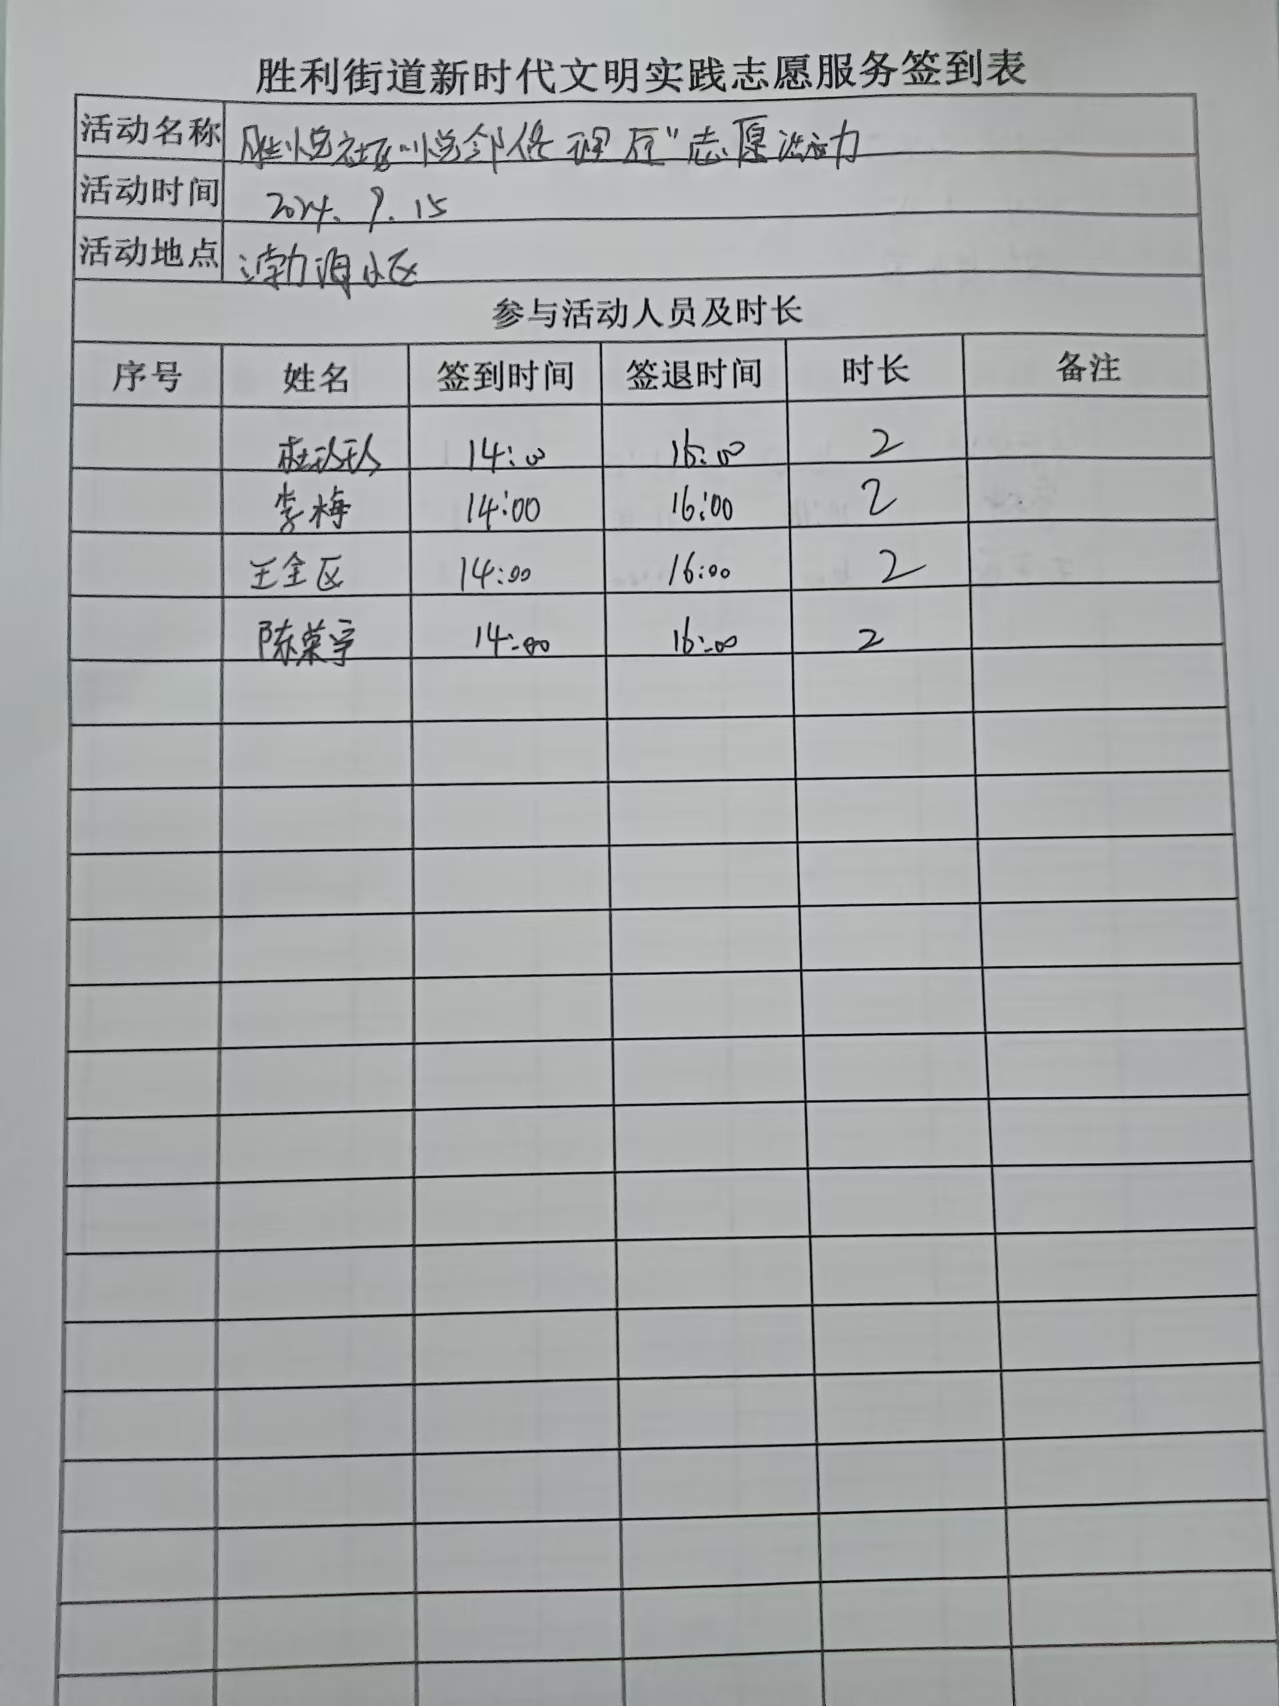 胜利街道新时代文明实践志愿服务签到表
活动名称 胜悦社区"悦邻修理匠"志愿活动
活动时间 2024.9.15
活动地点 渤海小区
参与活动人员及时长
序号 姓名 签到时间 签退时间 时长 备注
14:00 16:00 2
李梅 14:00 16:00 2
王全区 14:00 16:00 2
陈荣宇 14:00 16:00 2